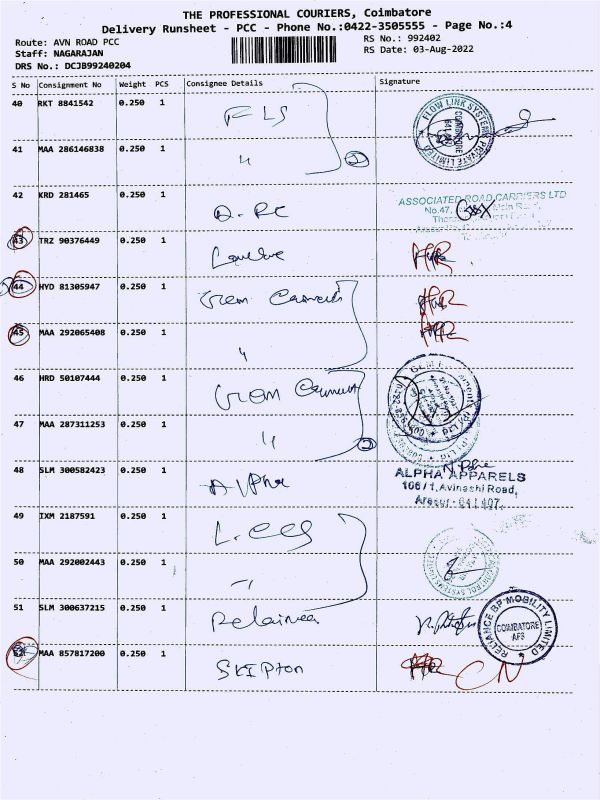 THE PROFESSIONAL COURIERS, Coimbatore
Delivery Runsheet - PCC - Phone No.:0422-3505555 - Page No.:4
Route: AVN ROAD PCC
RS No.: 992402
Staff: NAGARAJAN
RS Date: 03-Aug-2022
DRS No.: DCJB99240204
S No Consignment No Weight PCS Consignee Details Signature
40 RKT 8841542 0.250 1 FLS
FLOW LINK SYSTEMS PRIVATE LIMITED
COIMBATORE
41 MAA 286146838 0.250 1 "
2
42 KRD 281465 0.250 1 A. RC
ASSOCIATED ROAD CARRIERS LTD
No.47,
43 TRZ 90376449 0.250 1
44 HYD 81305947 0.250 1 Gem
45 MAA 292065408 0.250 1 "
46 HRD 50107444 0.250 1 Gem
47 MAA 287311253 0.250 1 "
2
48 SLM 300582423 0.250 1 Alpha
ALPHA APPARELS
106/1, Avinashi Road,
Arasur - 641 407.
49 IXM 2187591 0.250 1
50 MAA 292002443 0.250 1 "
51 SLM 300637215 0.250 1
RELIANCE BP MOBILITY LIMITED
COIMBATORE
AFS
52 MAA 857817200 0.250 1 SKIPTON
CN